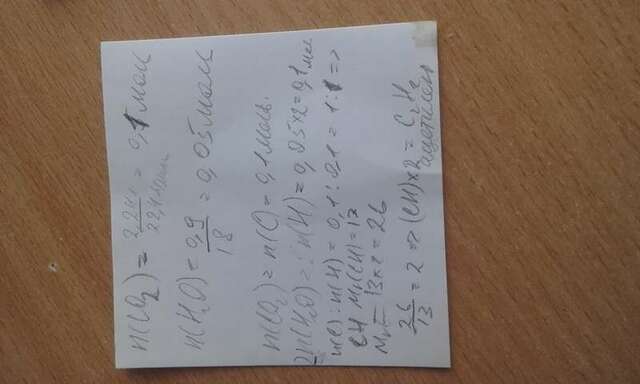 n(CO₂) = 2,24л / 22,4л/моль = 0,1моль
n(H₂O) = 0,9 / 18 = 0,05моль
n(CO₂) = n(C) = 0,1моль.
2n(H₂O) = n(H) = 0,05×2 = 0,1моль
n(C) : n(H) = 0,1 : 0,1 = 1:1 =>
CH Mr(CH) = 13
Mr = 13×2 = 26
26/13 = 2 => (CH)×2 = C₂H₂
ацетилен